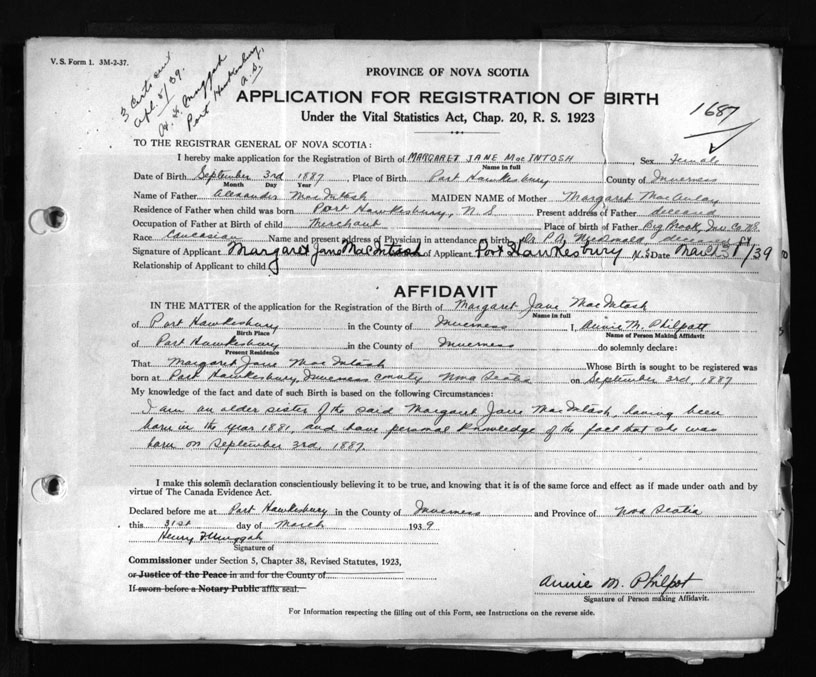 V. S. Form 1. 3M-2-37.
3 Certs
Apl. 5/39.
Port Hawkesbury,
PROVINCE OF NOVA SCOTIA
APPLICATION FOR REGISTRATION OF BIRTH
Under the Vital Statistics Act, Chap. 20, R. S. 1923
1687
TO THE REGISTRAR GENERAL OF NOVA SCOTIA:
I hereby make application for the Registration of Birth of MARGARET JANE MacINTOSH, Sex Female
Name in full
Date of Birth September 3rd 1887, Place of Birth Port Hawkesbury County of Inverness
Month Day Year
Name of Father Alexander MacIntosh MAIDEN NAME of Mother Margaret MacAulay
Residence of Father when child was born Port Hawkesbury, N.S. Present address of Father deceased
Occupation of Father at Birth of child Merchant Place of birth of Father Big Brook, Inv. Co. N.S.
Race Caucasian Name and present address of Physician in attendance at birth Dr. P.A. McDonald, deceased
Signature of Applicant Margaret Jane MacIntosh of Applicant Port Hawkesbury N.S. Date March 31/39
Relationship of Applicant to child
AFFIDAVIT
IN THE MATTER of the application for the Registration of the Birth of Margaret Jane MacIntosh
Name in full
of Port Hawkesbury in the County of Inverness I, Annie M. Philpott
Birth Place Name of Person Making Affidavit
of Port Hawkesbury in the County of Inverness do solemnly declare:
Present Residence
That Margaret Jane MacIntosh Whose Birth is sought to be registered was
born at Port Hawkesbury, Inverness County Nova Scotia on September 3rd, 1887
My knowledge of the fact and date of such Birth is based on the following Circumstances:
I am an older sister of the said Margaret Jane MacIntosh, having been
born in the year 1881, and have personal knowledge of the fact that she was
born on September 3rd, 1887.
I make this solemn declaration conscientiously believing it to be true, and knowing that it is of the same force and effect as if made under oath and by
virtue of The Canada Evidence Act.
Declared before me at Port Hawkesbury in the County of Inverness and Province of Nova Scotia
this 31st day of March 1939
Henry
Signature of
Commissioner under Section 5, Chapter 38, Revised Statutes, 1923,
or Justice of the Peace in and for the County of
If sworn before a Notary Public affix seal.
Annie M. Philpot
Signature of Person making Affidavit.
For Information respecting the filling out of this Form, see Instructions on the reverse side.